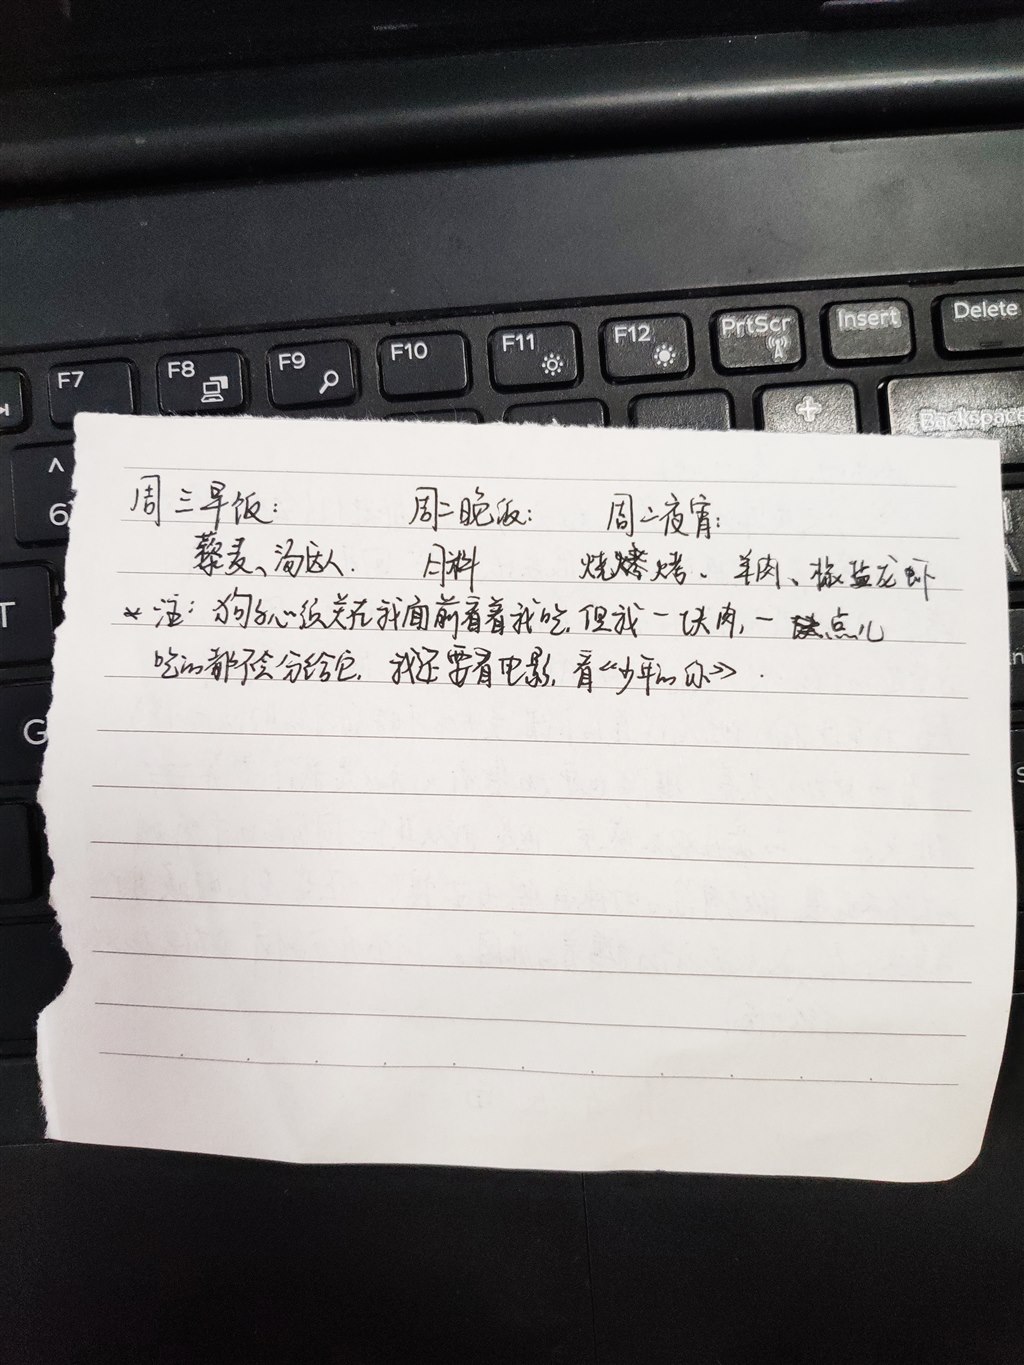 F7 F8 F9 F10 F11 F12 PrtScr Insert Delete
Backspace
^
6
T
G
周三早饭： 周二晚饭： 周二夜宵：
藜麦、汤达人. 日料 烧烤、羊肉、椒盐龙虾
*注：狗子必须关在我面前看着我吃,但我一块肉,一点儿
吃的都不会分给它. 我还要看电影,看《少年的你》.